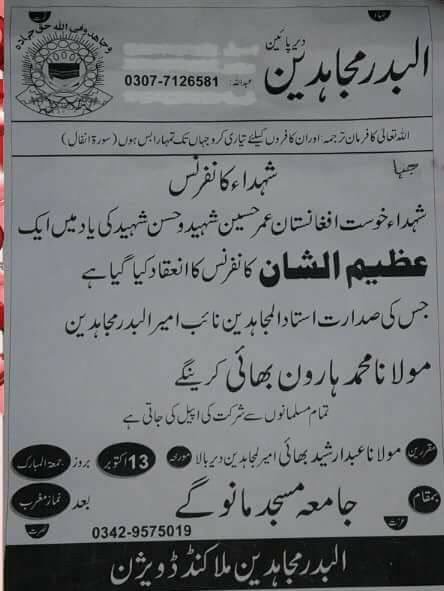 جہاد
دیر پائین
البدر مجاہدین
وجاھدو فی اللہ حق جہادہ
عبداللہ: 0307-7126581
اللہ تعالی کا فرمان ترجمہ: اور ان کافروں کیلئے تیاری کرو جہاں تک تمہارا بس ہوں (سورۃ انفال)
شہداء کانفرنس
شہداء خوست افغانستان عمر حسین شہید و حسن شہید کی یاد میں ایک
عظیم الشان کانفرنس کا انعقاد کیا گیا ہے
جس کی صدارت استاد المجاہدین نائب امیر البدر مجاہدین
مولانا محمد ہارون بھائی کرینگے
تمام مسلمانوں سے شرکت کی اپیل کی جاتی ہے
مقررین مولانا عبدالرشید بھائی امیر المجاہدین دیر بالا مورخہ 13 اکتوبر بروز جمعۃ المبارک
بمقام جامعہ مسجد مانوگے بعد نماز مغرب
عزت
0342-9575019
نصرت
البدر مجاہدین ملاکنڈ ڈویژن